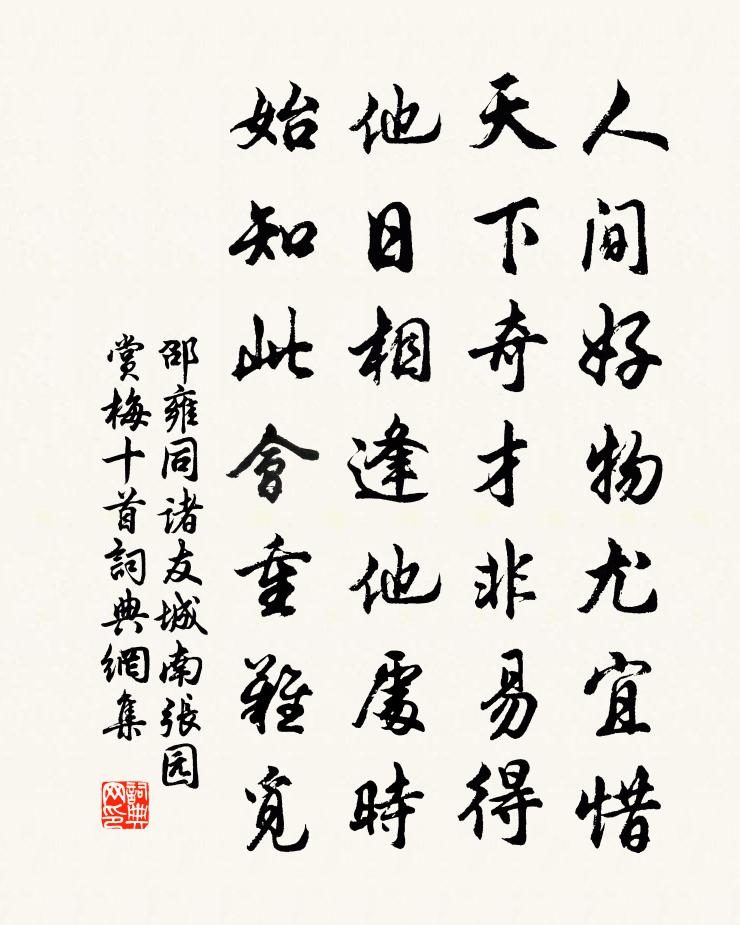 人间好物尤宜惜
天下奇才非易得
他日相逢他處時
始知此會重難覓
邵雍同诸友城南張园
赏梅十首詞典網集
詞典网印